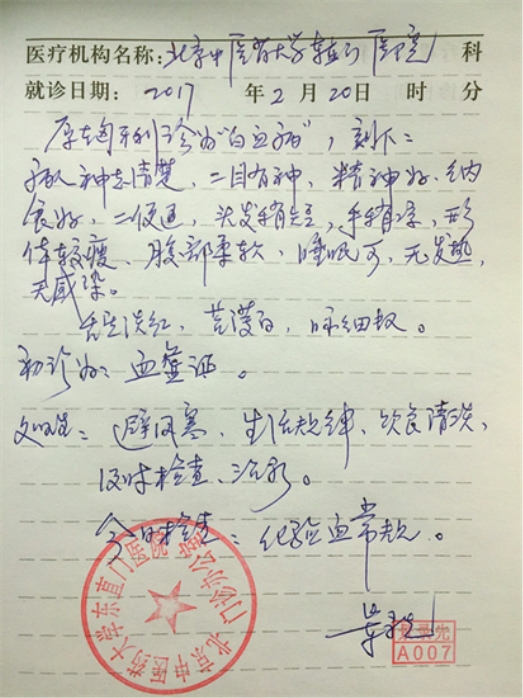 医疗机构名称：北京中医药大学东直门医院 科
就诊日期： 2017 年 2 月 20 日 时 分
原匈牙利诊为"白血病"，刻下：
病人神志清楚，二目有神，精神好，纳
食好，二便通，头发稍短，手稍凉，形
体较瘦、腹部柔软，睡眠可，无发热，
无感染。
舌淡红，苔薄白，脉细
初诊为：血虚证。
避风寒，生活规律，饮食清淡，
及时检查、治疗。
今日检查：化验血常规。
北京中医药大学东直门医院
门诊办公室
A007